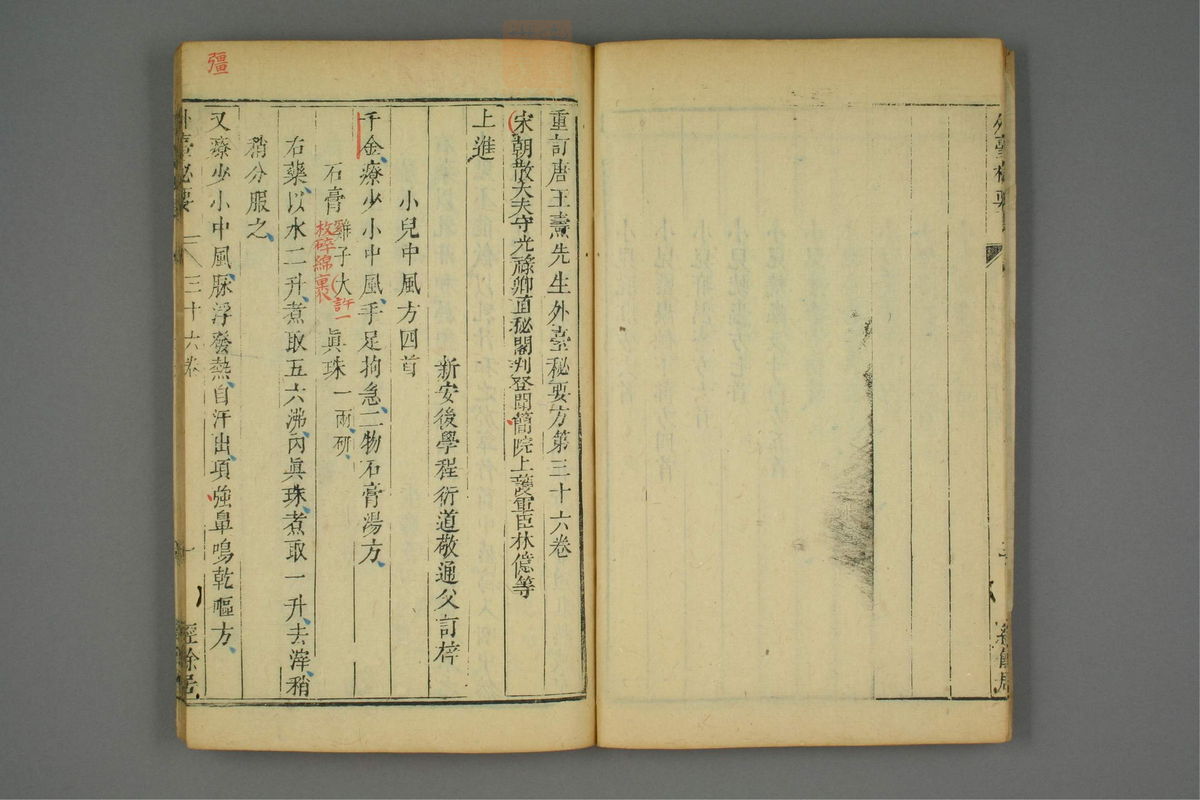 重訂唐王燾先生外臺秘要方第三十六卷
宋朝散大夫守光祿卿直秘閣判登聞簡院上護軍臣林億等
上進
新安後學程衍道敬通父訂梓
小兒中風方四首
千金療少小中風手足拘急二物石膏湯方
石膏雞子大許一枚碎綿裹眞珠一兩研
右藥以水二升煮取五六沸內眞珠煮取一升去滓稍
稍分服之
又療少小中風脉浮發熱自汗出項強鼻鳴乾嘔方
外臺秘要 三十六卷 一 經餘居
彊